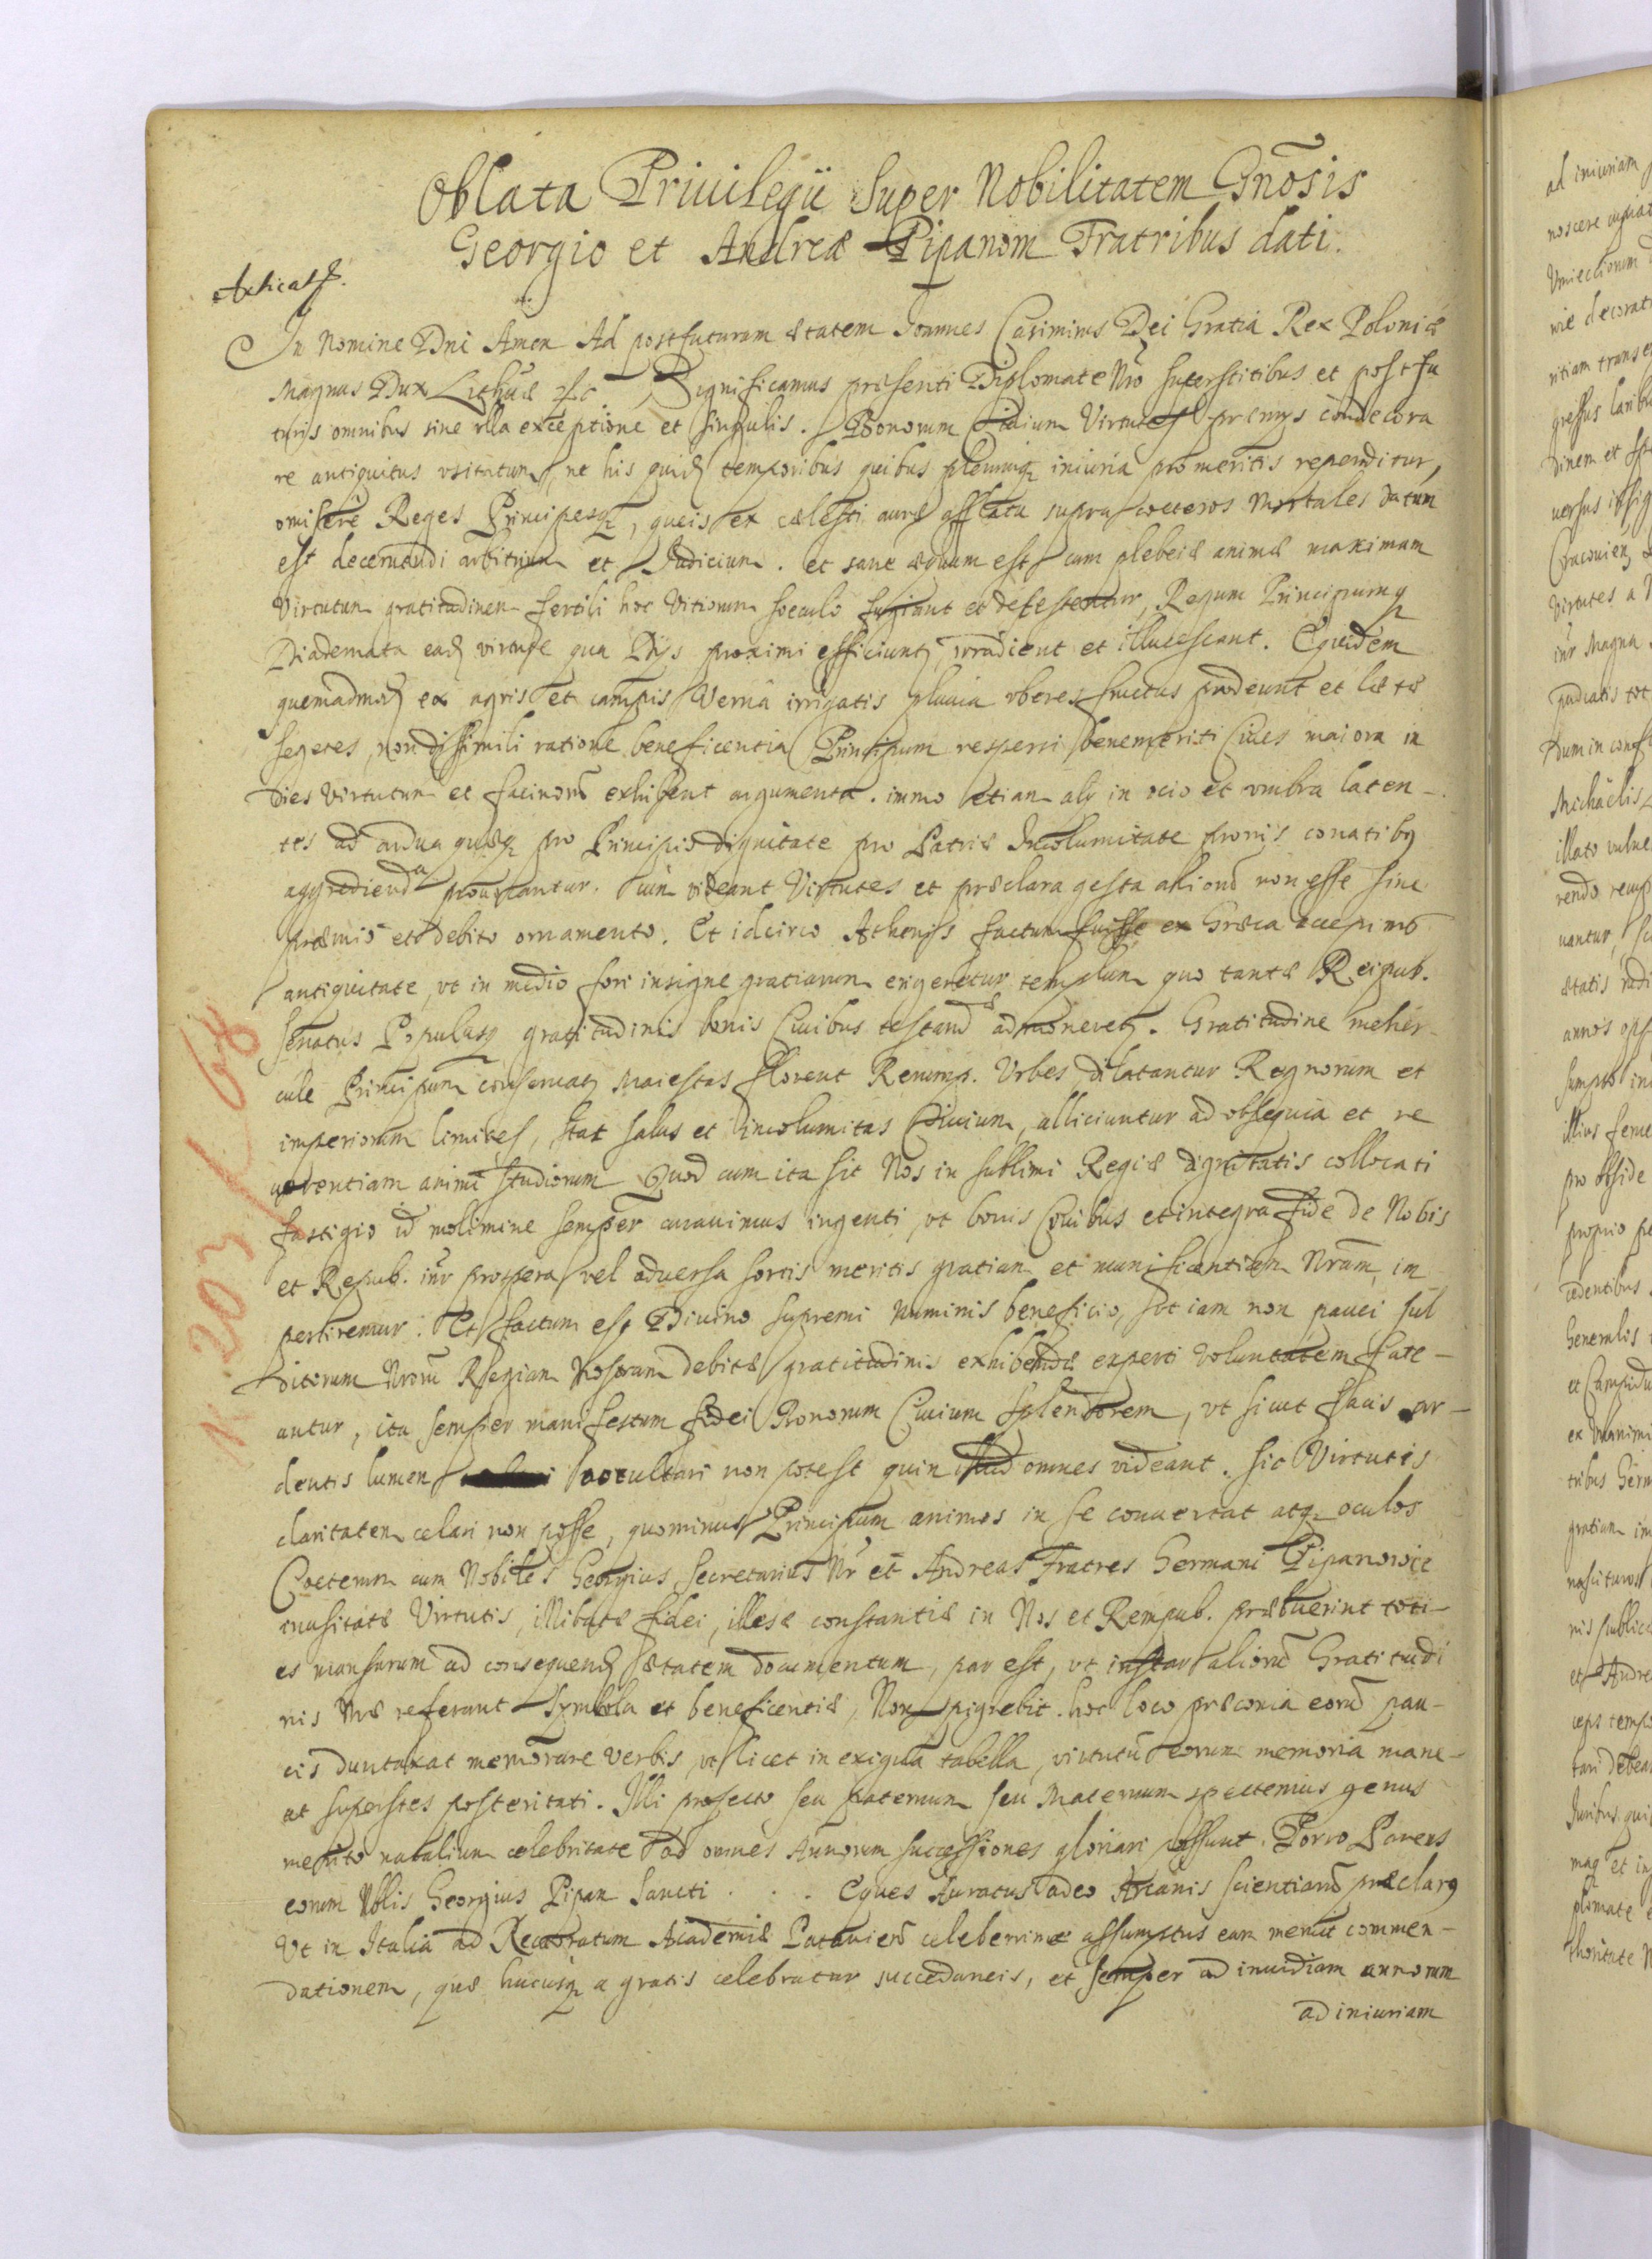 Oblata Priuilegii Super Nobilitatem Gnosis
Georgio et Andreæ Pipanom Fratribus dati.
In Nomine Dni Amen Ad postfuturam ætatem Ioannes Casimirus Dei Gratia Rex Poloniæ
Magnus Dux Lithuæ etc. Significamus præsenti Diplomate Nro superstitibus et postfu
turis omnibus sine vlla exceptione et singulis. Bonorum Ciuium Virtutes præmys condecora
re antiquitus vsitatum, ne his quidẽ temporibus quibus plerumq iniuria pro meritis rependitur,
omisere Reges Principesq, queis ex cælesti auræ afflatu supra cæteros Mortales datum
est decernendi arbitrium et Iudicium. et sane æquum est, cum plebeiæ animæ maximam
Virtutum gratitudinem fertili hoc Vitiorum sæculo fugiant et detestentur, Regum Principumq
Diademata eadẽ virtute qua Dys proximi efficiunt, irradient et illucescant. Equidem
quemadmodũ ex agris et campis Verna irrigatis pluuia vberes fructus prodeunt et lætæ
segetes, non dissimili ratione beneficentia Principum respersi benemeriti Ciues maiora in
dies Virtutum et facinorũ exhibent argumenta. immo etiam aly in ocio et vmbra laten-
tes ad ardua quæq pro Principis dignitate pro Patriæ Incolumitate pronis conatibq
aggredienda prouocantur. cum videant Virtutes et præclara gesta aliorũ non esse sine
præmio et debito ornamento. Et idcirco Athenis factum fuisse ex Græca accepimq
antiquitate, vt in medio fori insigne gratiarum erigeretur templum quo tantæ Reipub.
Senatus Populusq gratitudinis bonis Ciuibus testandæ admoneretur. Gratitudine meher-
cule Principum conseruatur Maiestas florent Rerump. Vrbes dilatantur Regnorum et
imperiorum limites, stat salus et incolumitas Ciuium, alliciuntur ad obsequia et re
uerentiam animi studiorum Quod cum ita sit Nos in sublimi Regiæ dignitatis collocati
fastigio id molimine semper curauimus ingenti, vt bonis Ciuibus et integra fide de Nobis
et Repub. inr prospera vel aduersa sortis meritis gratiam et munificentiam Nram, im
pertiremur. Et factum est Diuino supremi Numinis beneficio, vt iam non pauci sub
ditorum Nrorũ Regiam Nostram debitæ gratitudinis exhibendæ experti Voluntatem fate-
antur, ita semper manifestum fidei Bonorum Ciuium splendorem, vt sicut facis ar-
dentis lumen occultari non potest quin illud omnes videant. sic Virtutis
claritatem celari non posse, quominus Principum animos in se conuertat atq oculos
Cœterum cum Nobiles Georgius Secretarius Nr et Andreas Fratres Germani Pipanowie
inusitatæ Virtutis, illibatæ fidei, illesæ constantiæ in Nos et Rempub. præbuerint toti-
es mansurum ad consequendũ ætatem documentum, par est, vt instar aliorũ Gratitudi
nis Nræ referant Symbola et beneficentiæ, Non pigrebit hoc loco præconia eorũ pau-
cis duntaxat memorare verbis, vt licet in exigua tabella, virtutũ eorum memoria mane-
at superstes posteritati. Illi profecto seu paternum seu Maternum spectemus genus
merito natalium celebritate ad omnes Annorum successiones gloriari possunt. Porro Parens
eorum Nblis Georgius Pipan Sancti . . . Eques Auratus adeo Arcanis scientiarũ præclarq
Vt in Italia ad Rectoratum Academiæ Patauien̄ celeberrimæ assumptus eam meruit commen-
dationem, quæ hucusq a gratis celebratur succedaneis, et semper ad inuidiam annorum
ad iniuriam